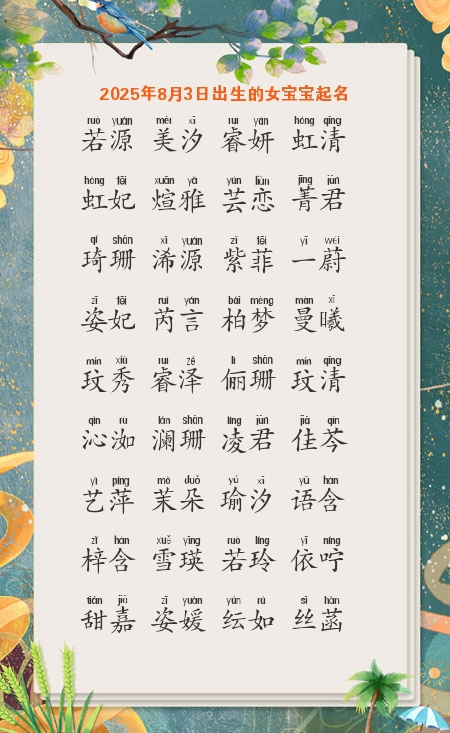 2025年8月3日出生的女宝宝起名
ruò yuán měi xī ruì yán hóng qīng
若源 美汐 睿妍 虹清
hóng fēi xuān yǎ yún liàn jīng jūn
虹妃 煊雅 芸恋 菁君
qí shān xī yuán zǐ fēi yī wèi
琦珊 浠源 紫菲 一蔚
zī fēi ruì yán bǎi mèng màn xī
姿妃 芮言 柏梦 曼曦
mín xiù ruì zé lì shān mín qīng
玟秀 睿泽 俪珊 玟清
qìn rù lán shān líng jūn jiā qín
沁洳 澜珊 凌君 佳芩
yì píng mò duǒ yú xī yǔ hán
艺萍 茉朵 瑜汐 语含
zǐ hán xuě yīng ruò líng yī níng
梓含 雪瑛 若玲 依咛
tián jiā zī yuàn yún rú sī hàn
甜嘉 姿媛 纭如 丝菡